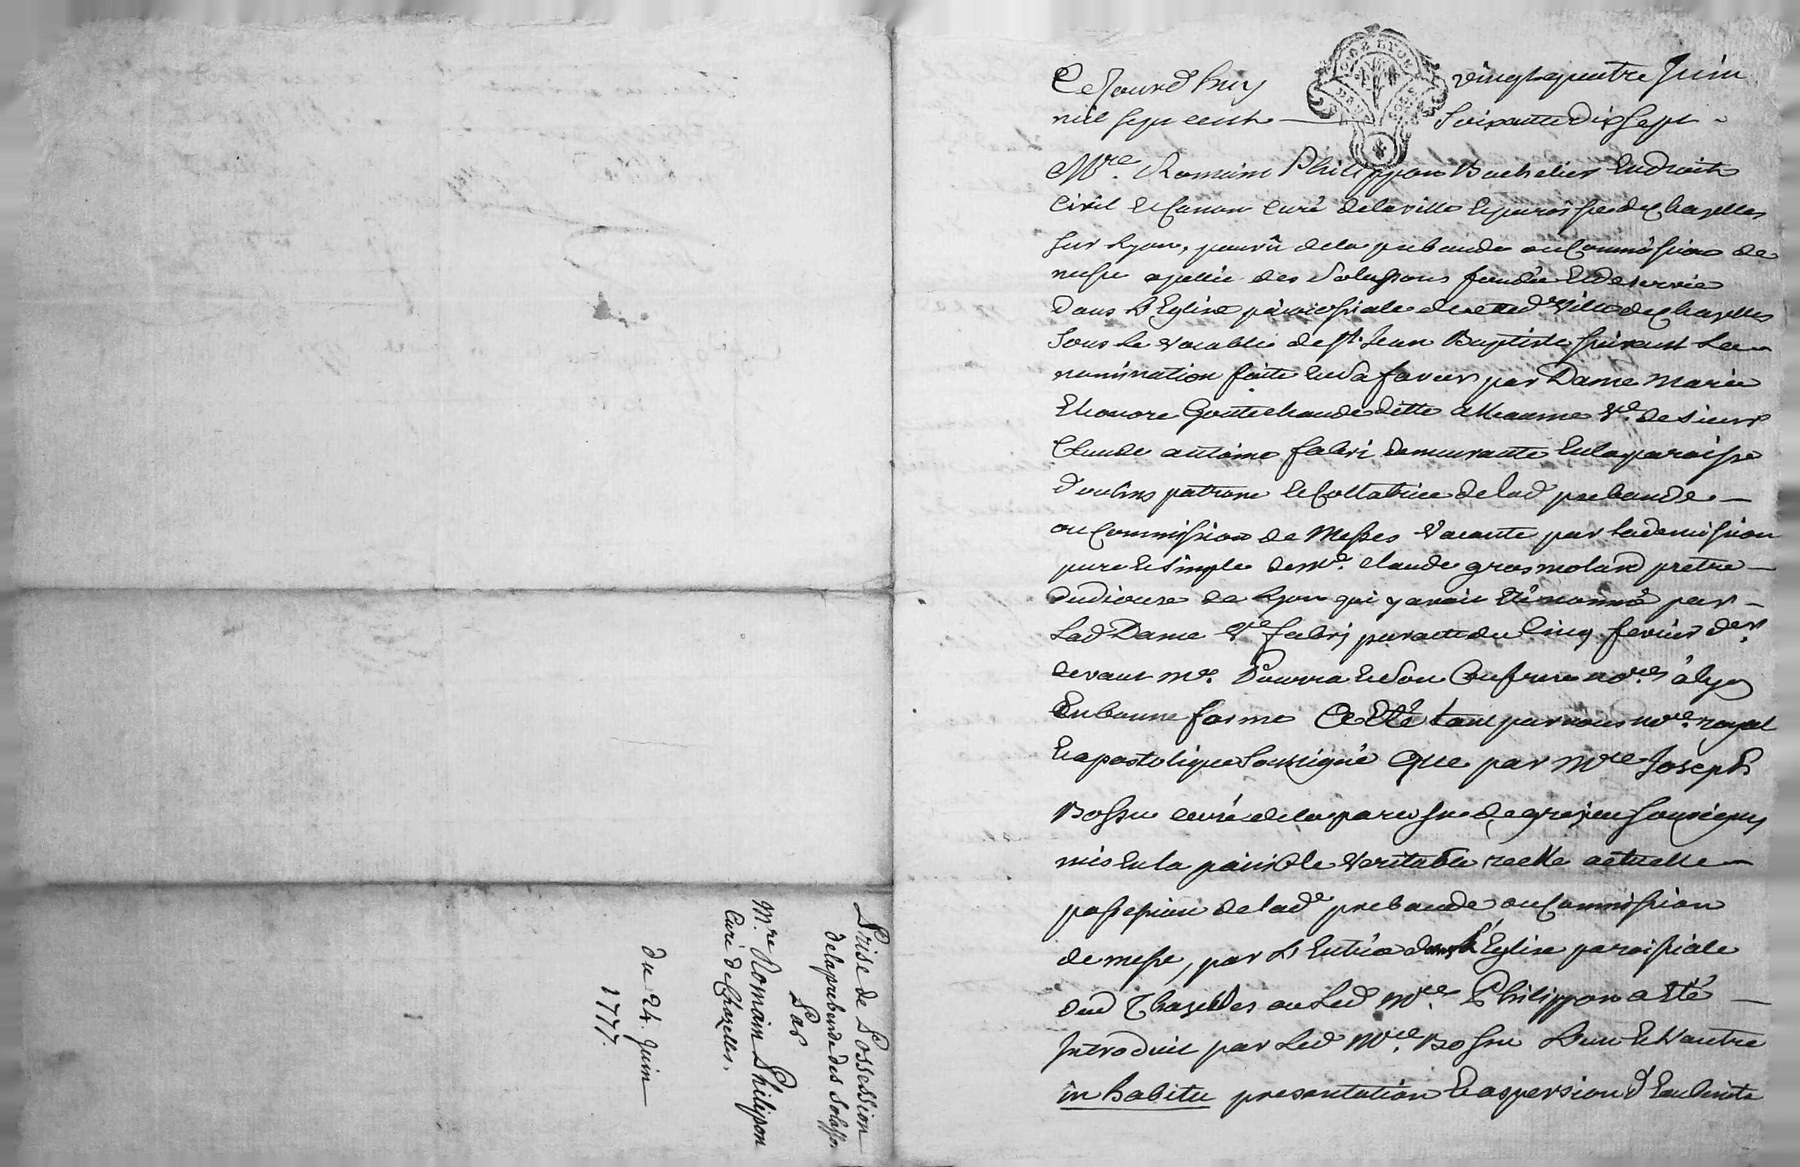 Prise de Possession
de la prebende des Solasson
Par
Mre Romain Philippon
Curé de Chazelles.
du 24. Juin
1777.
Ce Jourd'huy vingt quatre Juin
mil sept cent soixante dix sept
Mre. Romain Philippon Bachelier En droits
Civil Et Canon Curé de la ville Et paroisse de Chazelles
sur Lyon, pourvû de la prebande ou Commission de
messe apellée des Solassons fondée Et deservie
dans L'Eglise paroissiale de cetted.e Ville de Chazelles
sous le vocable de St. Jean Baptiste suivant la
nomination faite En sa faveur par Dame Marie
Eleonore Gouttechaude ditte Alleaume Ve. de sieur
Claude antoine fabri demeurante En la paroisse
d'oulins patrone Et Collatrice de lad. prebande
ou Commission de Messes vacante par la demission
pure Et simple de Mr. Claude grosmoland prêtre
du diocese de Lyon qui y avoit Eté nommé par
Lad. Dame Ve. fabri par acte du Cinq fevrier der.
devant Me. Pourra Et son Confrere no.res à Lyon
En bonne forme a Eté tant par nous no.re royal
Et apostolique soussigné que par Mre Joseph
Bossu curé de la paroisse de grezieu soussignés
mis En la paisible veritable reelle actuelle
possession de lad.e prebande ou Commission
de messe, par L'Entrée dans L'Eglise paroissiale
dud. Chazelles ou Led. Mre. Philippon a Eté
Introduit par Led. Mre. Bossu L'un Et L'autre
in habitu presentation Et aspersion d'Eau benite